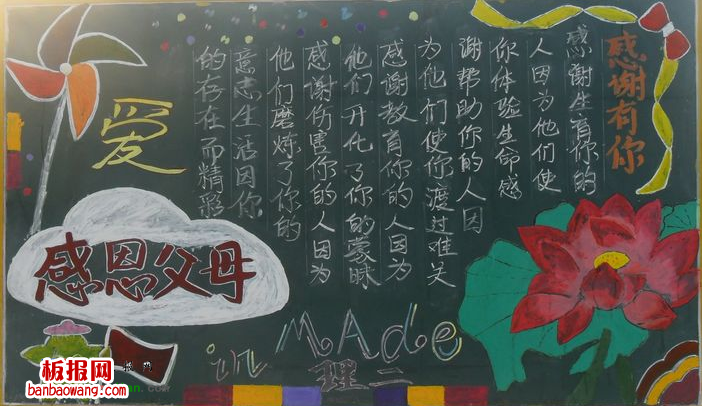 感谢有你
感谢生育你的
人因为他们使
你体验生命感
谢帮助你的人因
为他们使你渡过难关
感谢教育你的人因为
他们开化了你的蒙昧
感谢伤害你的人因为
他们磨炼了你的
意志生活因你
的存在而精彩
爱
感恩父母
in MAde
理二
板报网
banbaowang.com